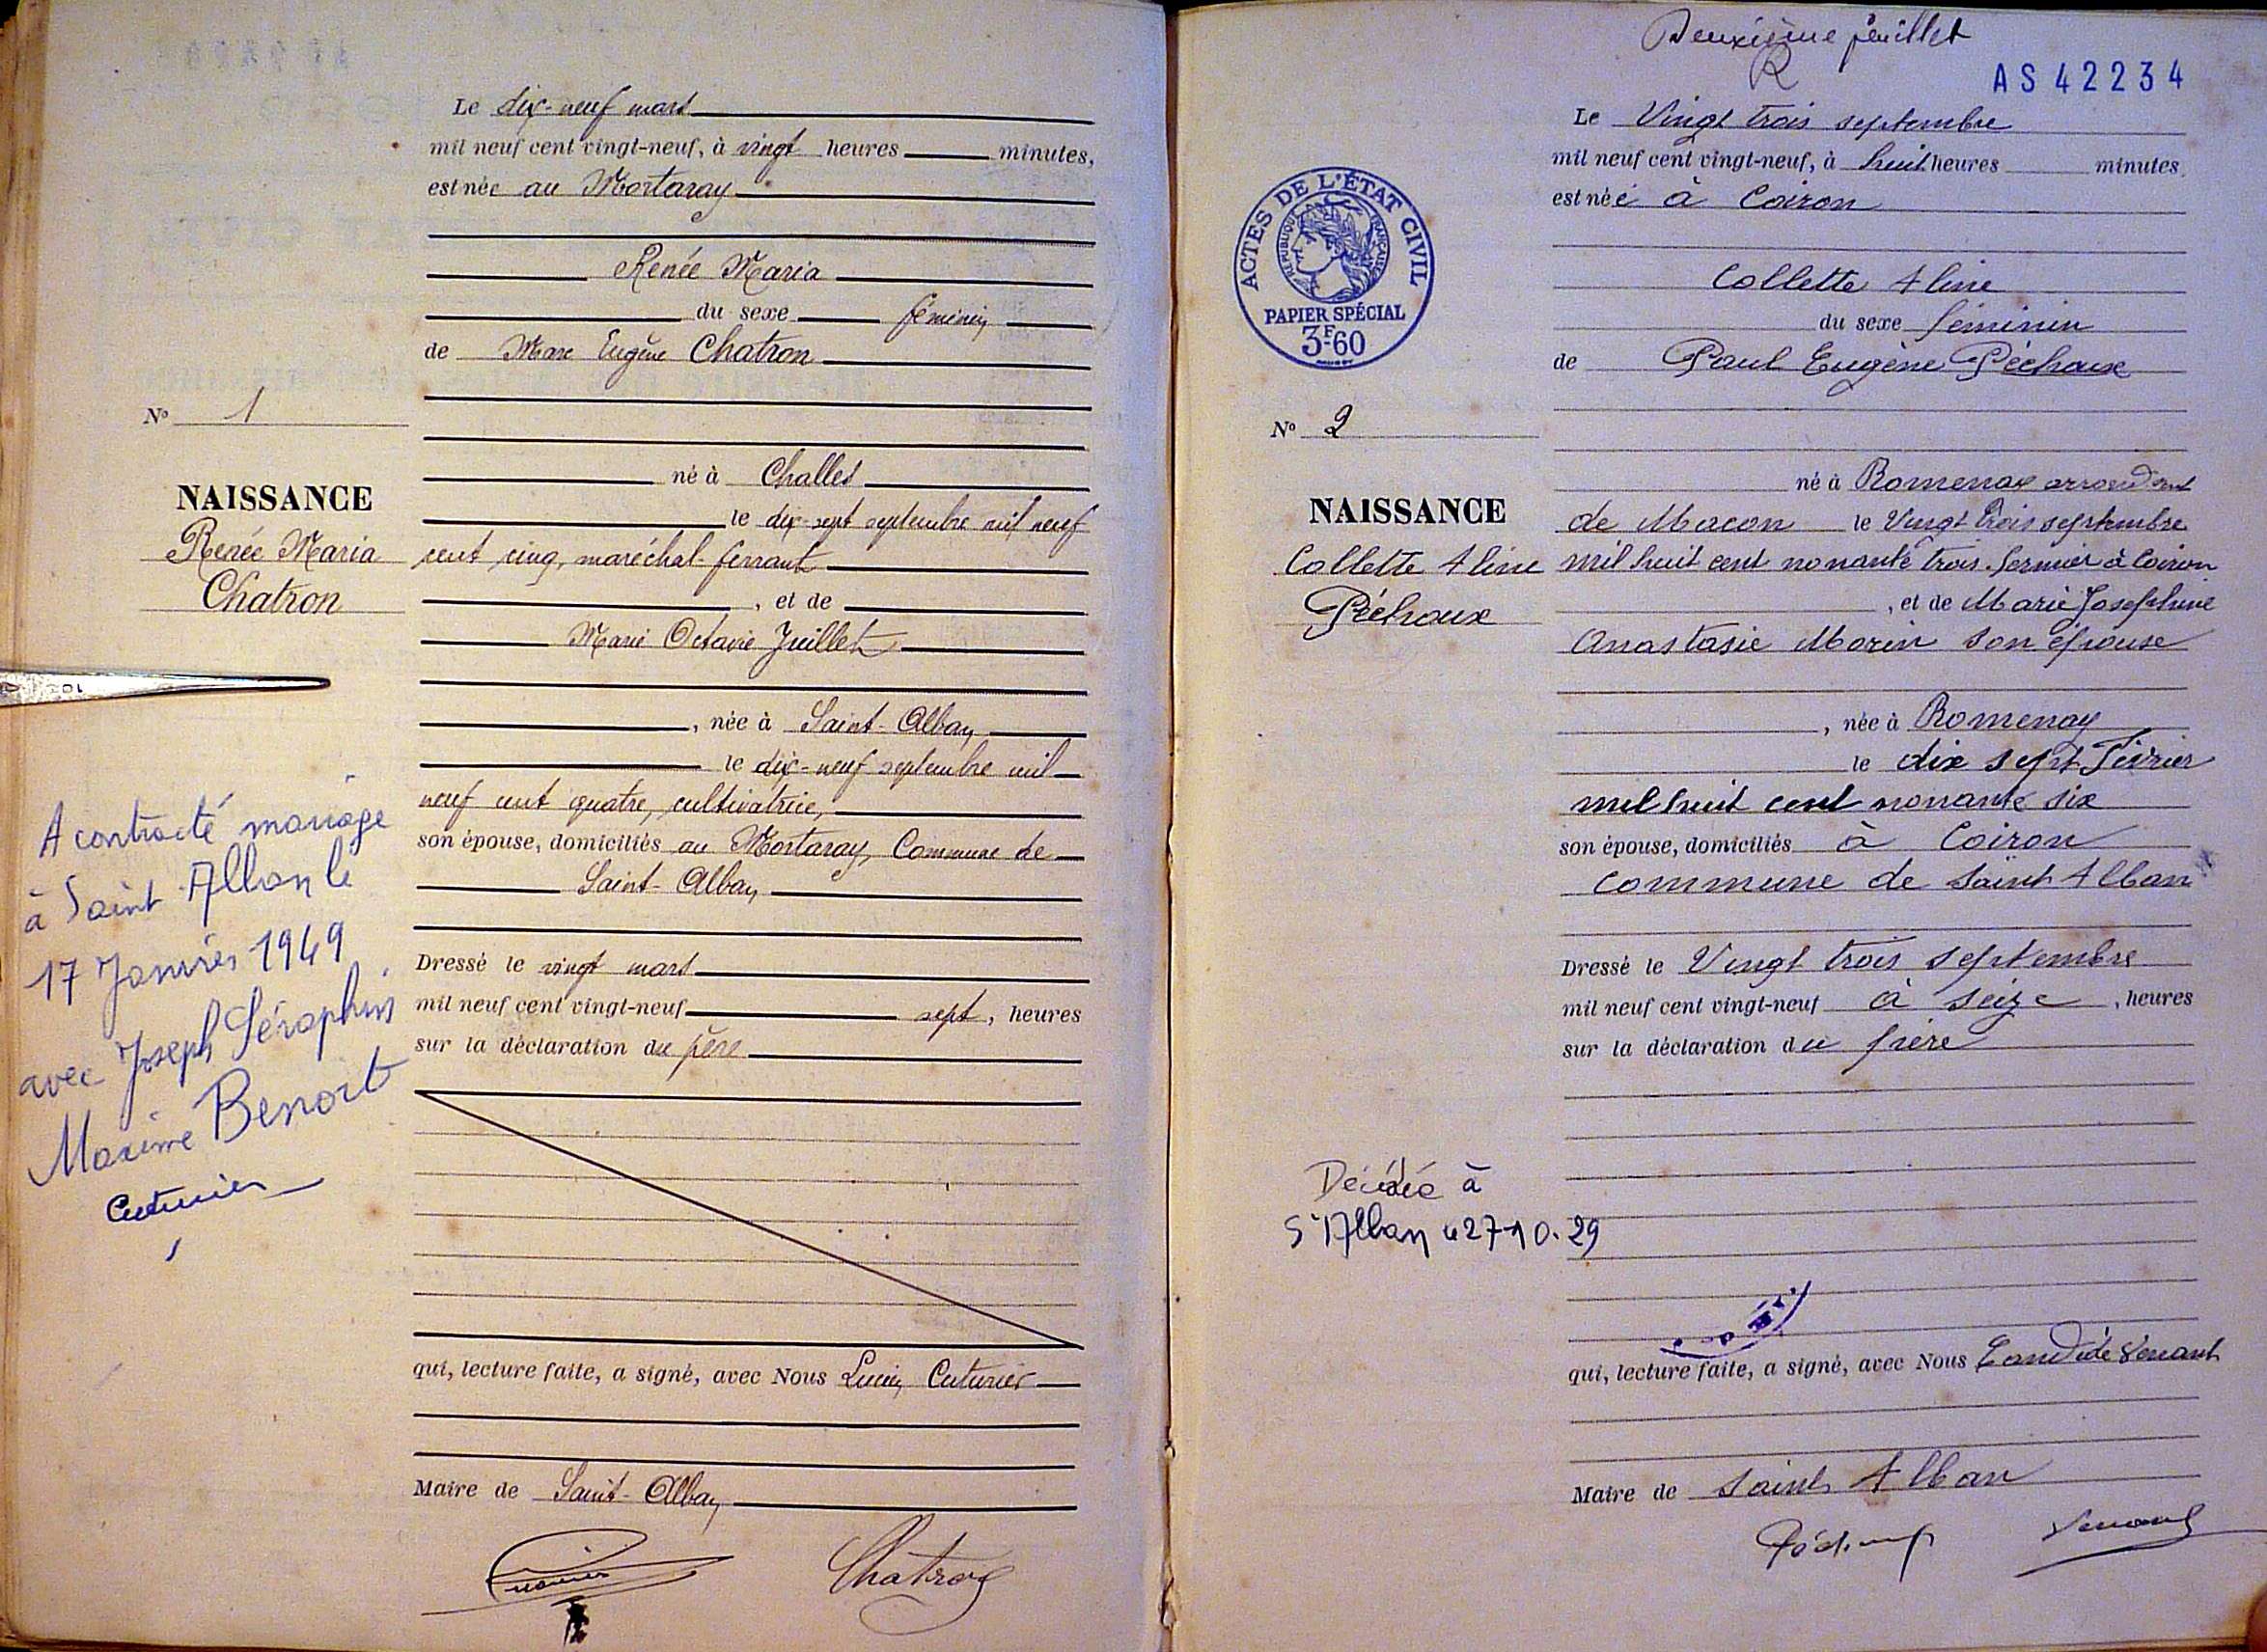 Le dix-neuf mars
mil neuf cent vingt-neuf, à vingt heures minutes,
est née au Mortaray
Renée Maria
du sexe féminin
de Marc Eugène Chatron
N° 1
né à Challes
NAISSANCE
le dix-sept septembre mil neuf
Renée Maria
cent cinq, maréchal-ferrant
Chatron
, et de
Marie Octavie Juillet
, née à Saint-Alban
le dix-neuf septembre mil
neuf cent quatre, cultivatrice,
son épouse, domiciliés au Mortaray, Commune de
Saint-Alban
Dressé le vingt mars
mil neuf cent vingt-neuf sept, heures
sur la déclaration du père
A contracté mariage
à Saint Alban le
17 Janvier 1949
avec Joseph Séraphin
Maxime Benoit
Cuturier
qui, lecture faite, a signé, avec Nous Lucien Cuturier
Maire de Saint-Alban
Cuturier
Chatron
Deuxième feuillet
R
AS 42234
Le Vingt trois septembre
mil neuf cent vingt-neuf, à huit heures minutes,
est née à Coiron
ACTES DE L'ÉTAT CIVIL
RÉPUBLIQUE FRANÇAISE
PAPIER SPÉCIAL
3F60
Collette Aline
du sexe féminin
de Paul Eugène Péchoux
N° 2
né à Romenay arrondsmt
NAISSANCE
de Macon le Vingt trois septembre
Collette Aline
mil huit cent nonante trois. fermier à Coiron
Péchoux
, et de Marie Josephine
Anastasie Morin son épouse
, née à Romenay
le dix sept Février
mil huit cent nonante six
son épouse, domiciliés à Coiron
commune de Saint Alban
Dressé le Vingt trois septembre
mil neuf cent vingt-neuf à seize , heures
sur la déclaration du père
Décédée à
St Alban le 27-10-29
qui, lecture faite, a signé, avec Nous Candide Venant
Maire de Saint Alban
Péchoux
Venant